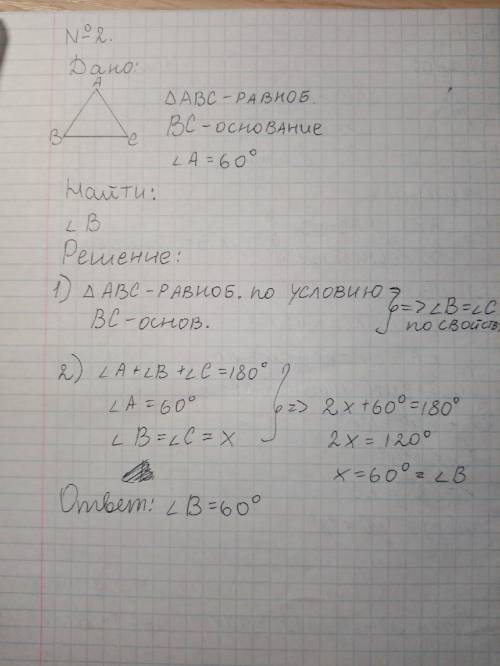 №2.
Дано:
A
B
C
△ABC-РАВНОБ.
BC-основание
∠A=60°
Найти:
∠B
Решение:
1) △ABC-РАВНОБ. по условию
BC-основ.
=> ∠B=∠C
по свойств.
2) ∠A+∠B+∠C=180°
∠A=60°
∠B=∠C=x
=> 2x+60°=180°
2x=120°
x=60°=∠B
Ответ: ∠B=60°